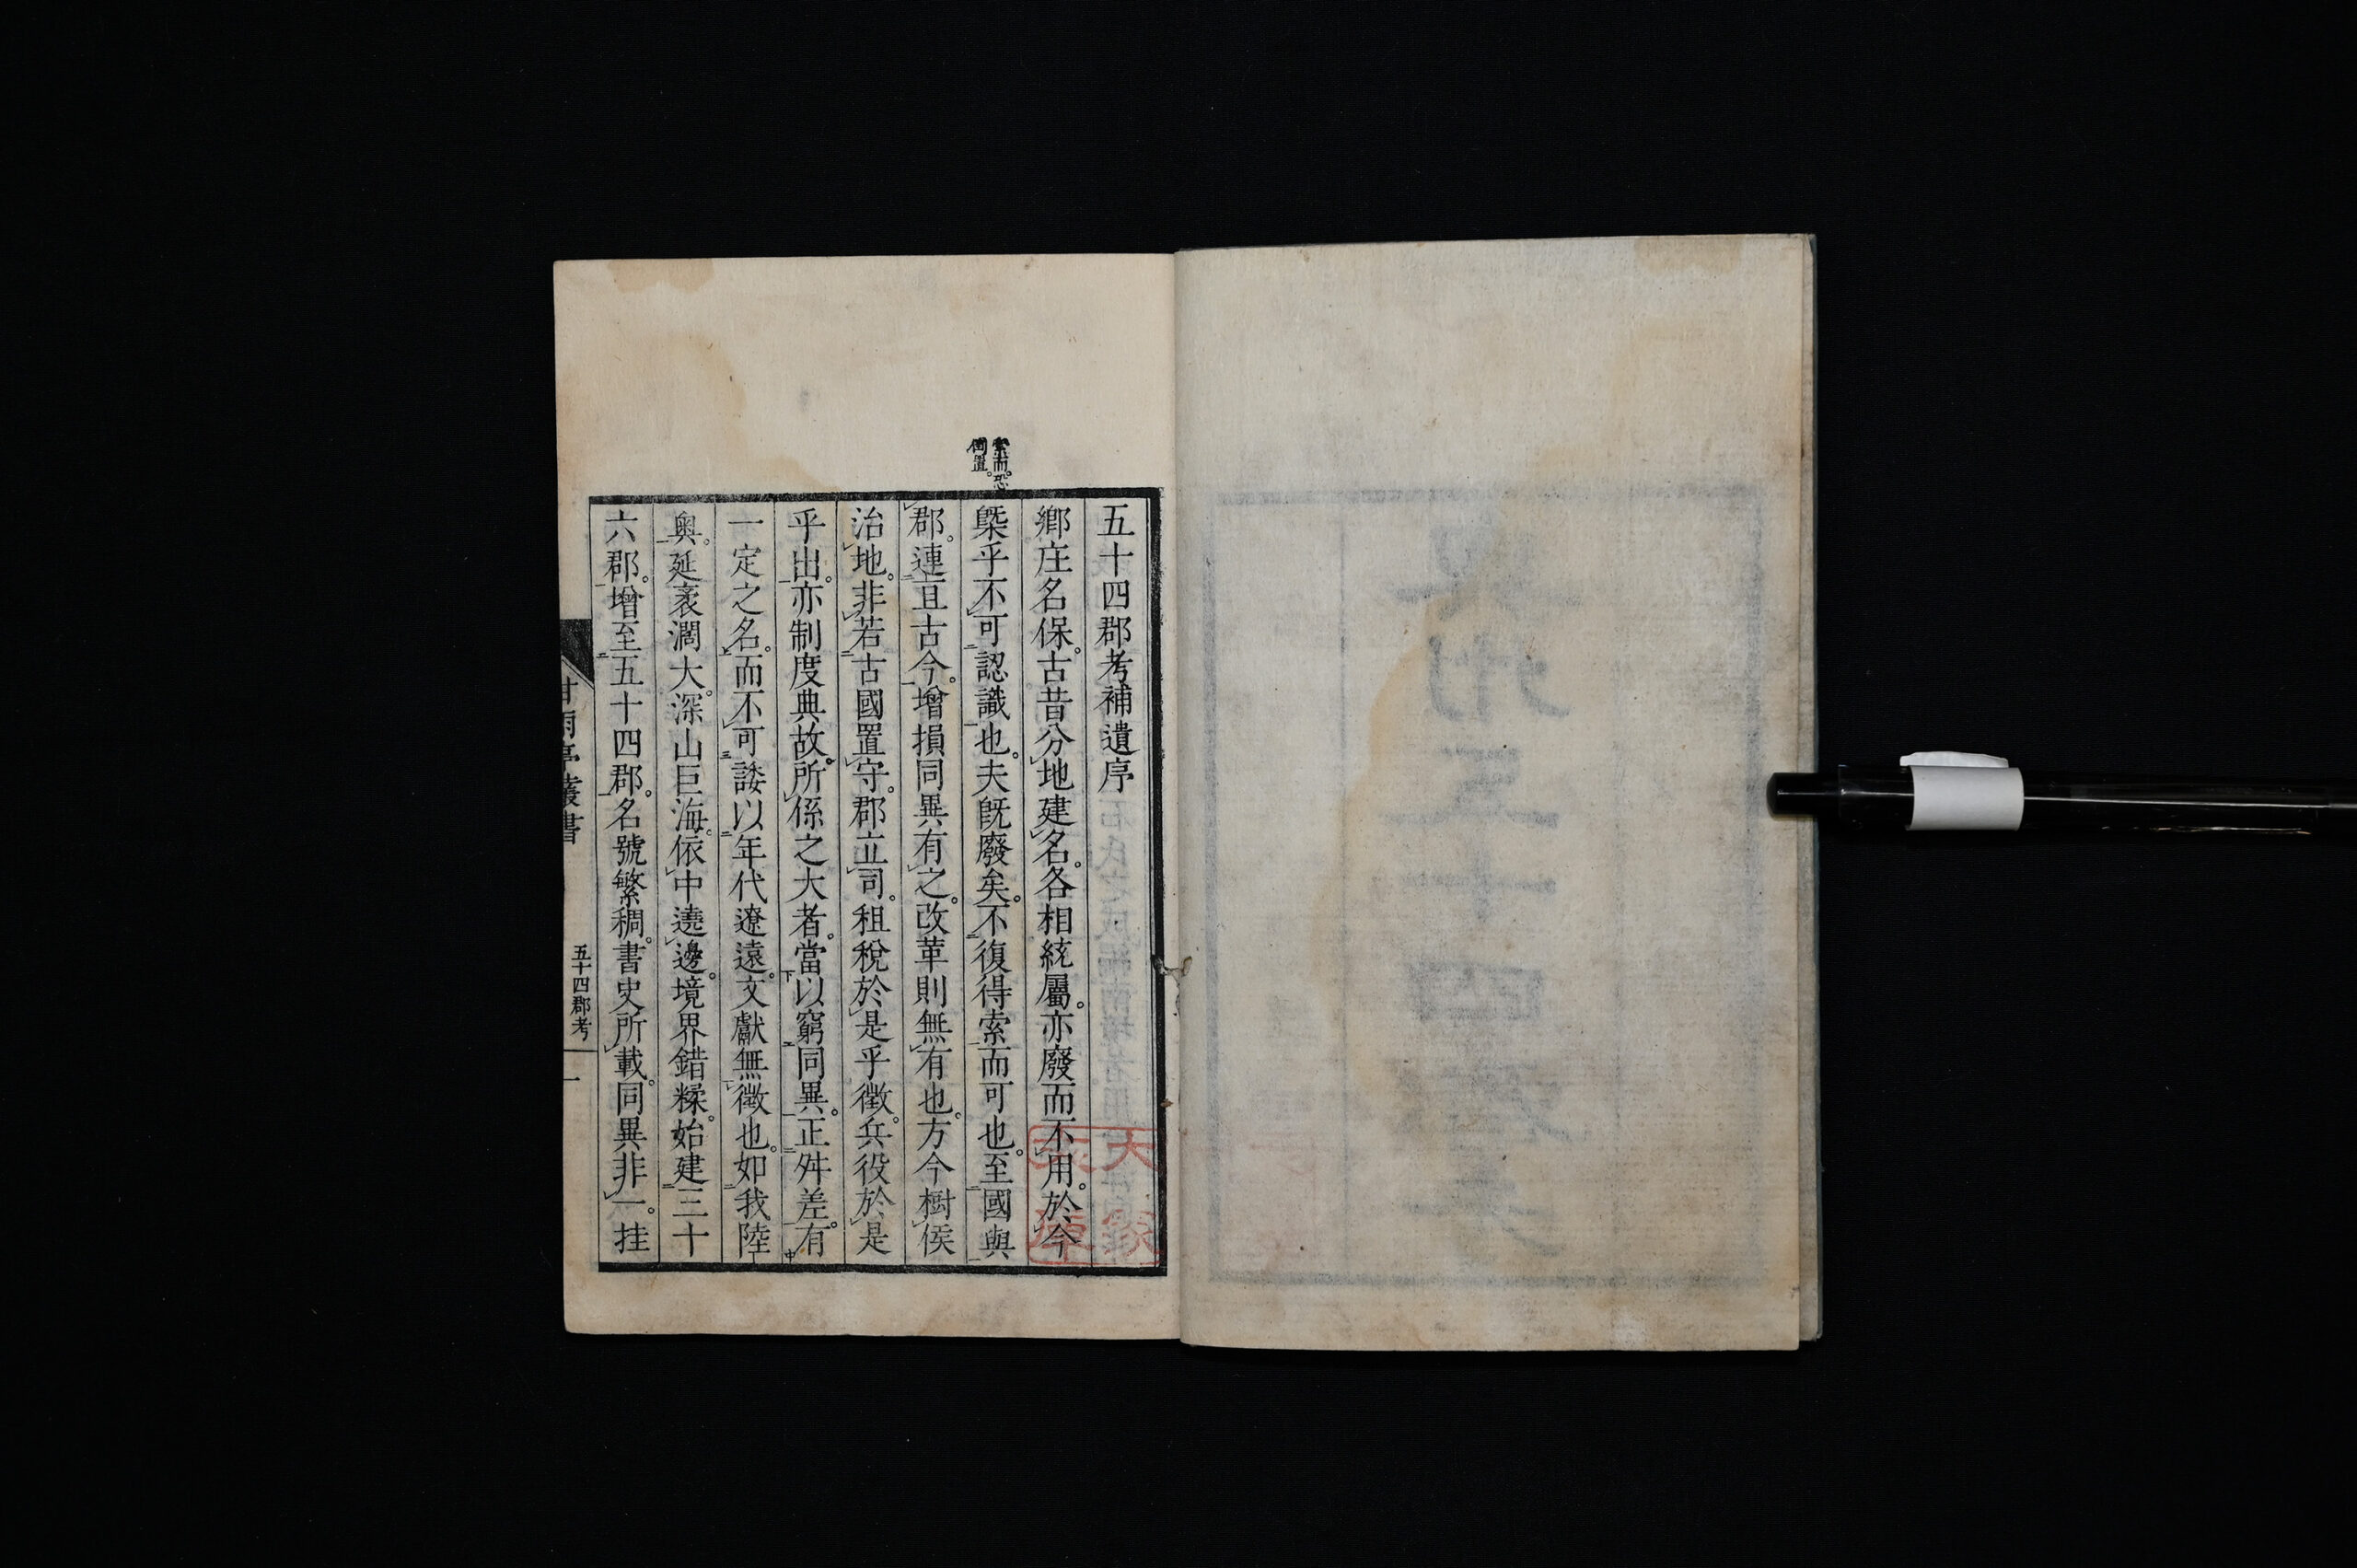 五十四郡考補遺序
鄕庄名保。古昔分地建名。各相統屬。亦廢而不用。於今
槩乎不可認識也。夫旣廢矣。不復得索而可也。至國與
郡。連亘古今。增損同異有之。改革則無有也。方今樹侯
治地。非若古國置守。郡立司。租稅於是乎徵。兵役於是
乎出。亦制度典故。所係之大者。當以窮同異。正舛差。有
一定之名。而不可諉以年代遼遠。文獻無徵也。如我陸
奧。延袤濶大。深山巨海。依中遶邊。境界錯糅。始建三十
六郡。增至五十四郡。名號繁稠。書史所載。同異非一。挂
索而。恐
倒置。
甘雨亭叢書
五十四郡考
一